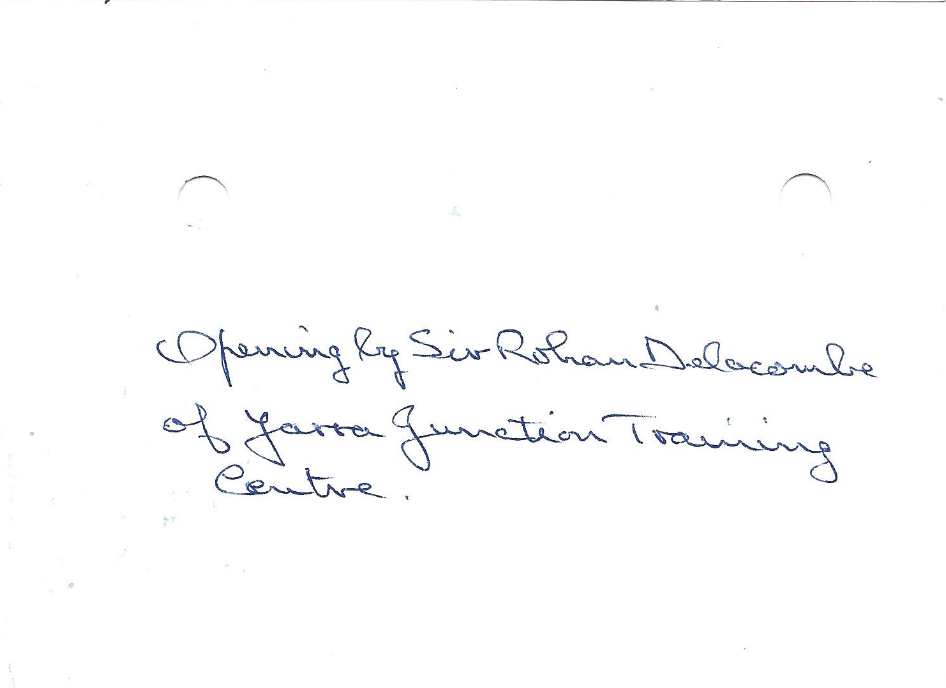 Opening by Sir Rohan Delacombe
of Yarra Junction Training
Centre.